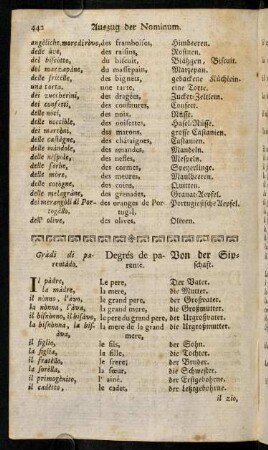 442 Auszug der Nominum.
angéliche, more di rôvo, des framboises, Himbeeren.
delle úve, des raisins, Rosinen.
del biscótto, du biscuit, Biscuit.
del marzapáne, du massepain, Marzepan.
delle fritélle, des bignets, gebackene Küchlein.
una torta, une tarte, eine Torte.
dei zuccherini, des dragées, Zucker-Zeltlein.
dei confetti, des confitures, Confect.
delle noci, des noix, Nüsse.
delle nocciole, des noisettes, Hasel-Nüsse.
dei marróni, des marons, grosse Castanien.
delle castágne, des châtaignes, Castanien.
delle mándole, des amandes, Mandeln.
delle néspole, des nefles, Mespeln.
delle sorbe, des cormes, Speyerlinge.
delle móre, des meures, Maulbeeren.
delle cotógne, des coins, Quitten.
delle melagráne, des grenades, Granat-Aepfel.
dei merángoli di Portogállo, des oranges de Portugal, Portugesische Aepfel.
dell' olive, des olives, Oliven.
Grádi di parentádo. Degrés de parenté. Von der Sippschaft.
Il pádre, Le pere, Der Vater.
la mádre, la mere, die Mutter.
il nónno, l'ávo, le grand pere, der Großvater.
la nónna, l'áva, la grand mere, die Großmutter.
il bisnónno, il bisávo, le pere du grand pere, der Urgroßvater.
la bisnónna, la bisáva, la mere de la grand mere, die Urgroßmutter.
il figlio, le fils, der Sohn.
la figlia, la fille, die Tochter.
il fratéllo, le frere, der Bruder.
la sorélla, la sœur, die Schwester.
il primogénito, l' ainé, der Erstgebohrne.
il cadétto, le cadet, der letztgebohrne.
il zio,